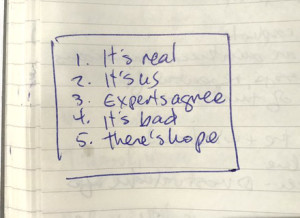 1. It's real
2. It's us
3. Experts agree
4. It's bad
5. There's hope